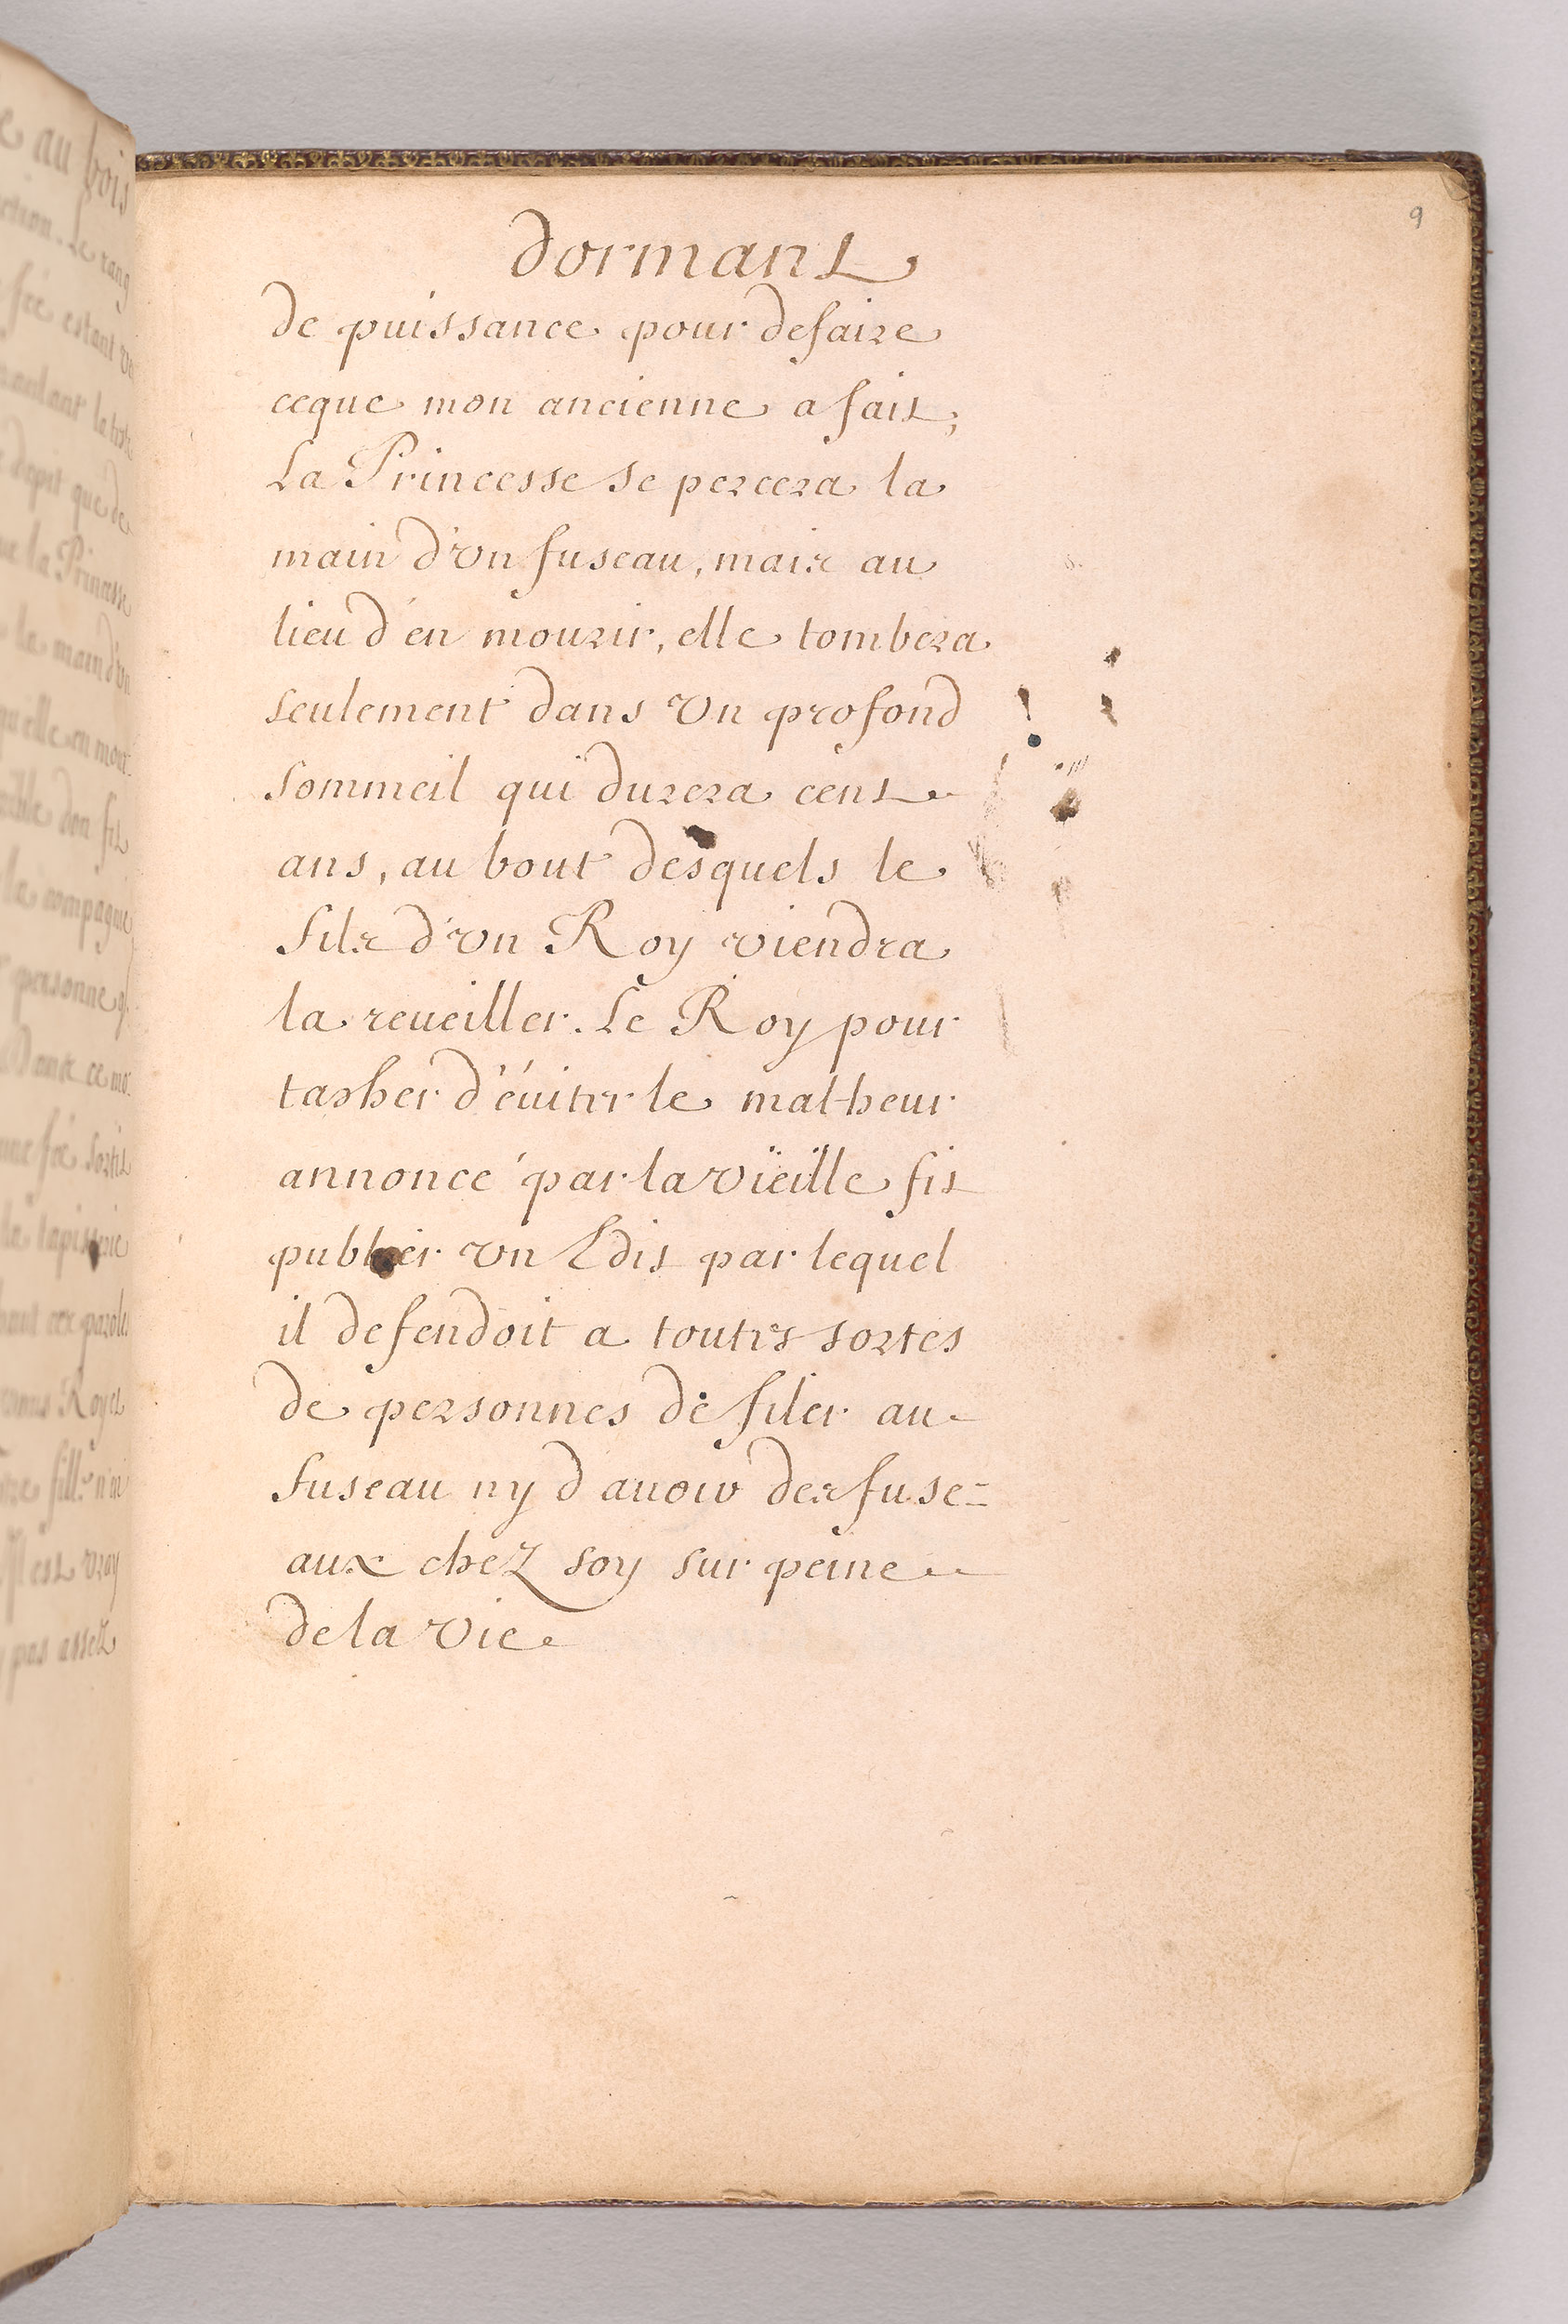 e au bois
ction. Le rang
fée estant
branlant la teste
depit que de
la Princesse
la main d'vn
qu'elle en mour
don fit
la compagnie
personne q
Dans ce mo
fée sortit
la tapisserie
haut ces paroles
Roy et
fille n'en
Il est vray
pas assez
9
dormant
de puissance pour defaire
ceque mon ancienne a fait;
La Princesse se percera la
main d'vn fuseau, mais au
lieu d'en mourir, elle tombera
seulement dans vn profond
sommeil qui durera cent
ans, au bout desquels le
fils d'vn Roy viendra
la reueiller. Le Roy pour
tascher d'éuiter le malheur
annoncé par la vieille fit
publier vn Edit par lequel
il defendoit a toutes sortes
de personnes de filer au
fuseau ny d'auoir des fuse=
aux chez soy sur peine
de la vie